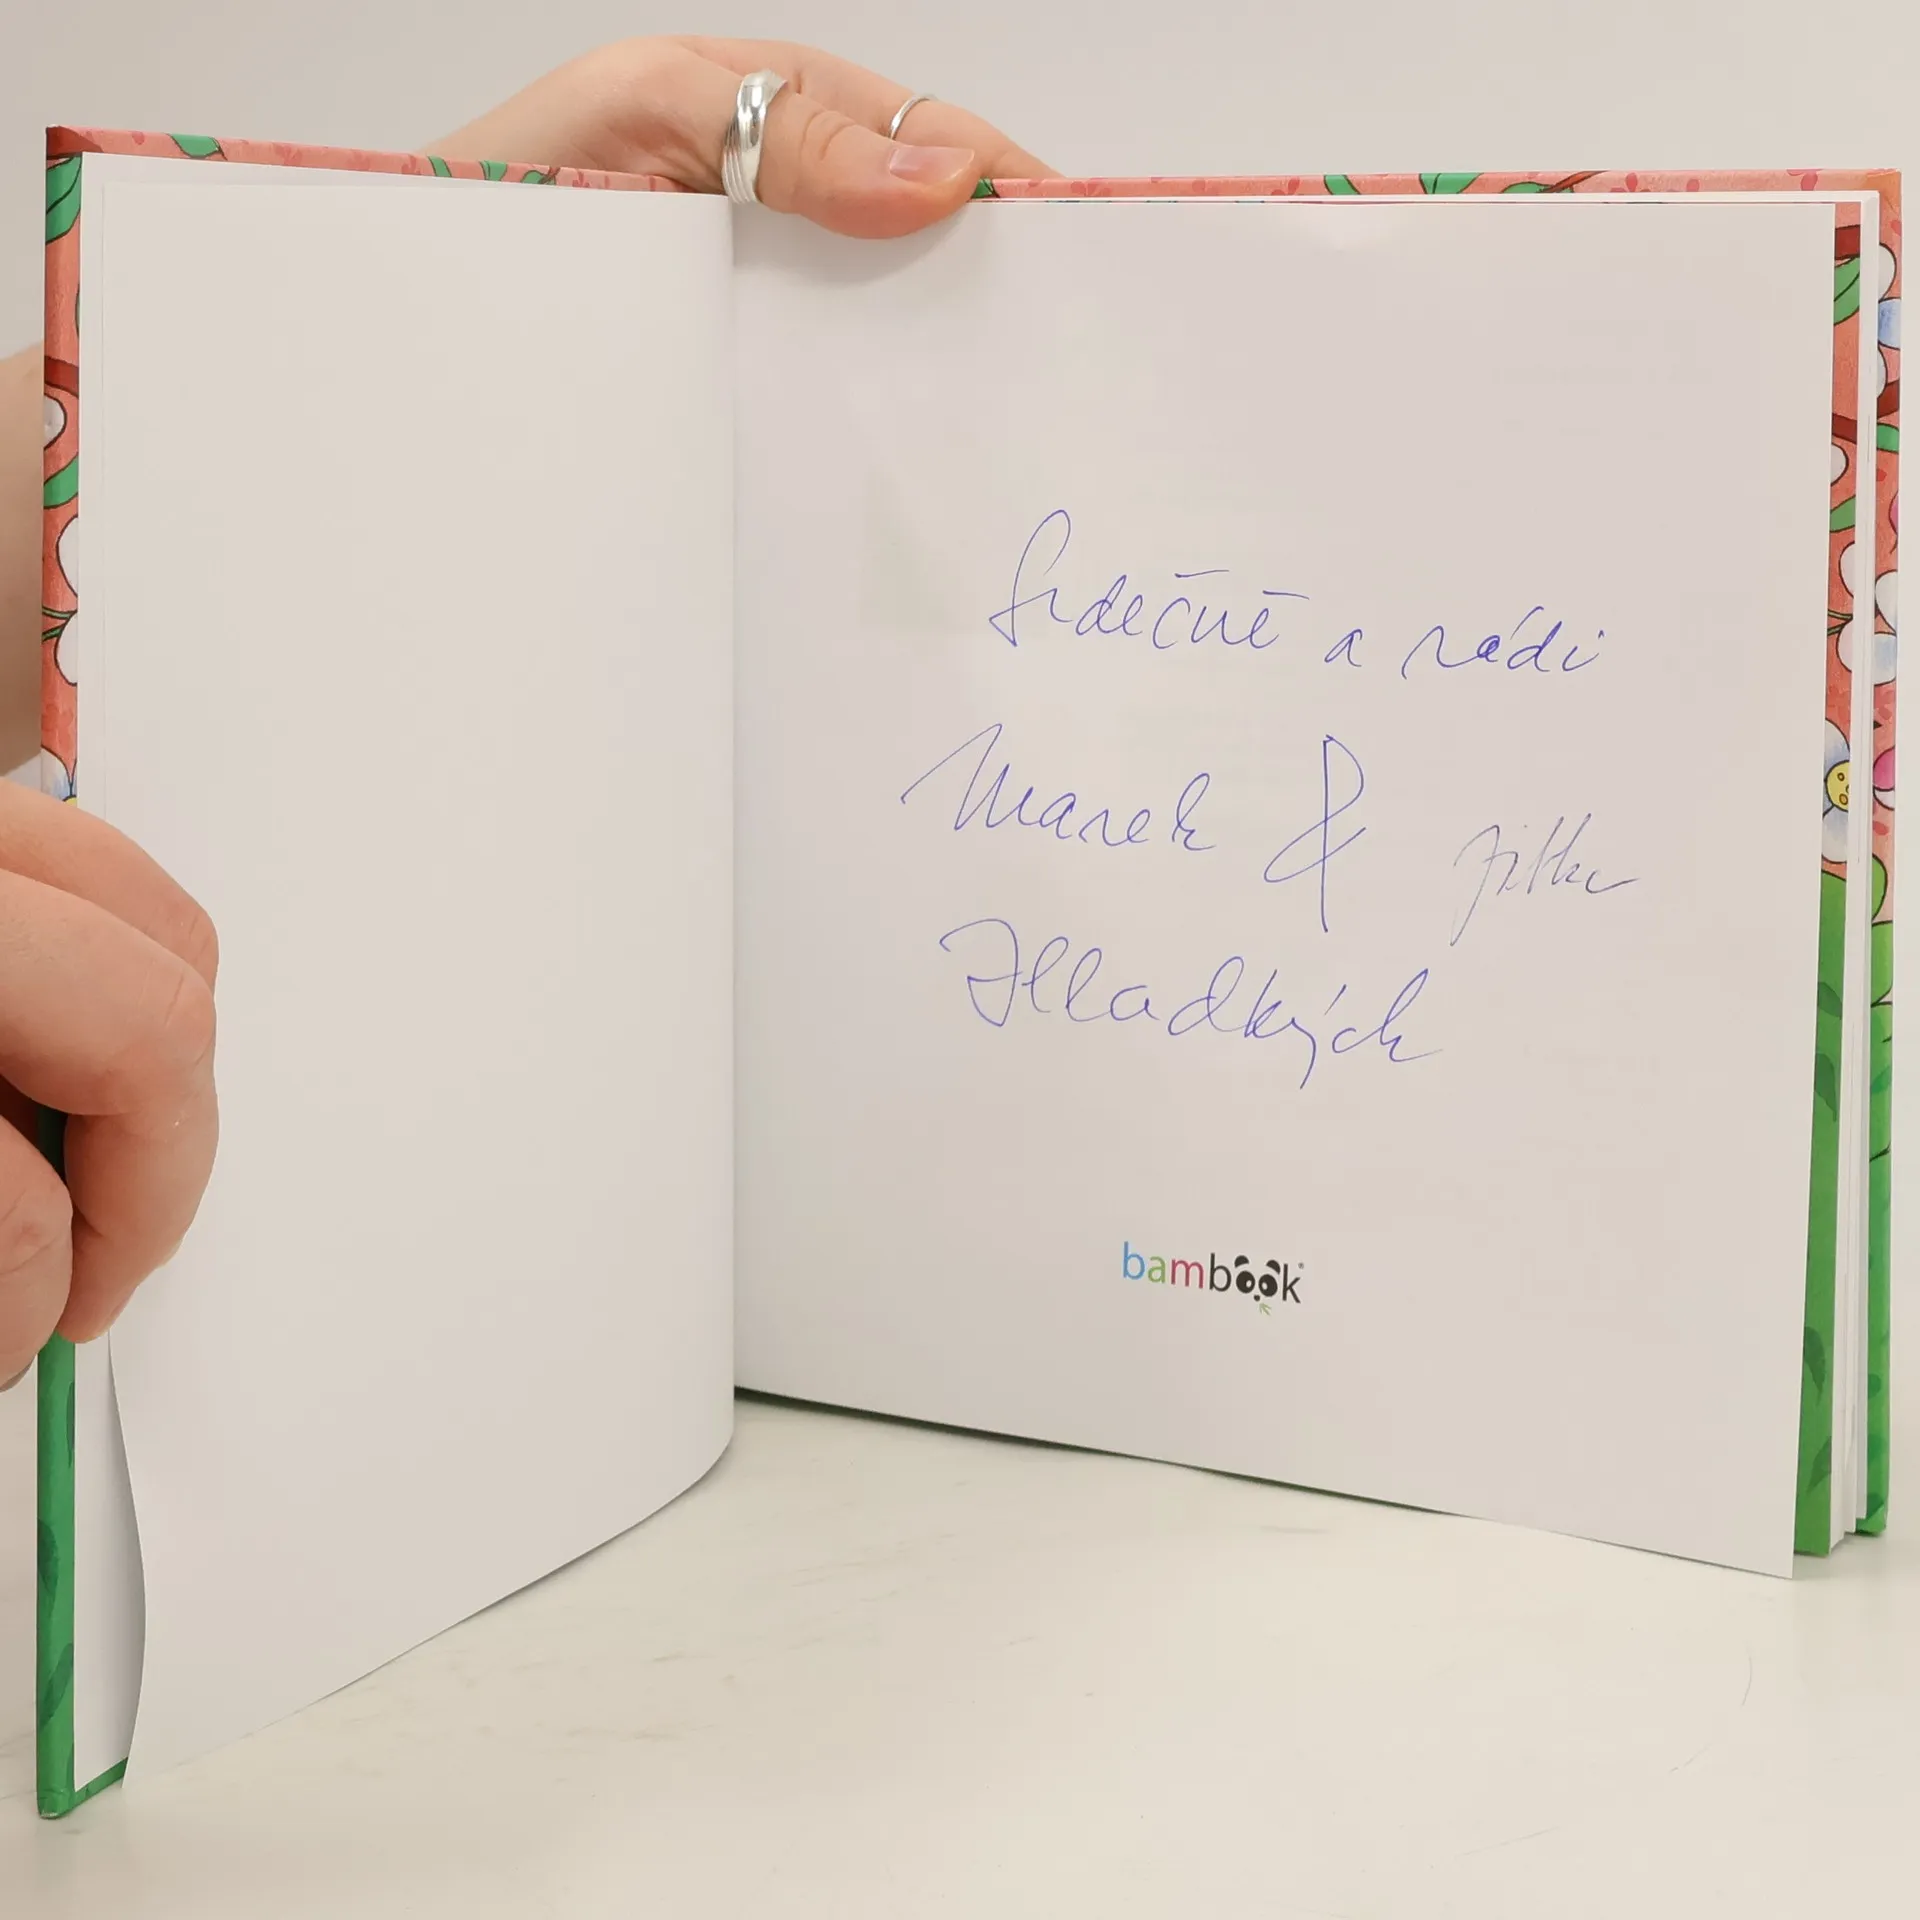 Srdečně a rádi
Marek & Jitka
Hladkých
bambook®